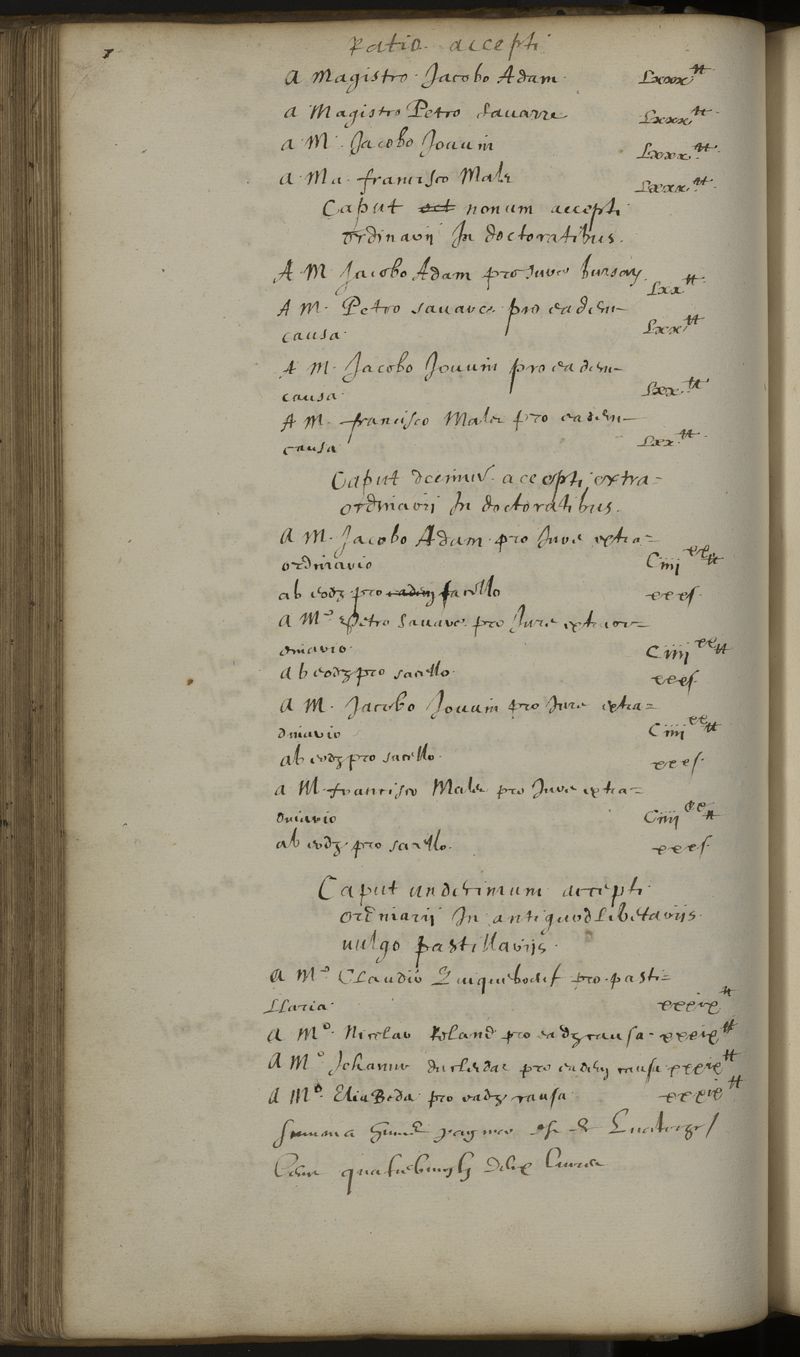 Ratio accepti
A Magistro Jacobo Adam Lxxx ⁱⁱ
a Magistro Petro Sauarre Lxxx ⁱⁱ
a M. Jacobo Jouuin Lxxx ⁱⁱ
a Ma. francisco Male Lxxx ⁱⁱ
Caput oct nonum accepti
ordinarij In doctoratibus.
A M Jacobo Adam pro Jure bursarum
Lxx ⁱⁱ
A M. Petro sauare pro eadem
causa. Lxx ⁱⁱ
A M. Jacobo Jouuin pro eadem
causa. Lxx ⁱⁱ
A M. francisco Male pro eadem
causa Lxx ⁱⁱ
Caput decimum accepti extra=
ordinarij In doctoratibus.
A M. Jacobo Adam pro Jure extra=
ordinario Ciiij xx ⁱⁱ
ab eodz pro eadem sacello xxx s
a Mo Petro Sauare pro Jure extraor=
dinario. Ciiij xx ⁱⁱ
ab eodz pro sacello. xxx s
a M. Jacobo Jouuin pro Jure extra=
dinario Ciiij xx ⁱⁱ
ab eodz pro sacello. xxx s
a M francisco Male pro Jure extra=
dinario Ciiij xx ⁱⁱ
ab eodz pro sacello. xxx s
Caput undecimum accepti
ordinarij In antiquodlibetarijs
uulgo pastillarijs.
a Mo Claudio Quiqueboeuf pro pasti=
llaria. xxxix ⁱⁱ
a Mo. Nicolao Roland pro eadz causa xxxix ⁱⁱ
A Mo Johanne pro eadem causa xxxix ⁱⁱ
A Mo. Elia Beda pro eadz causa xxxix ⁱⁱ
summa